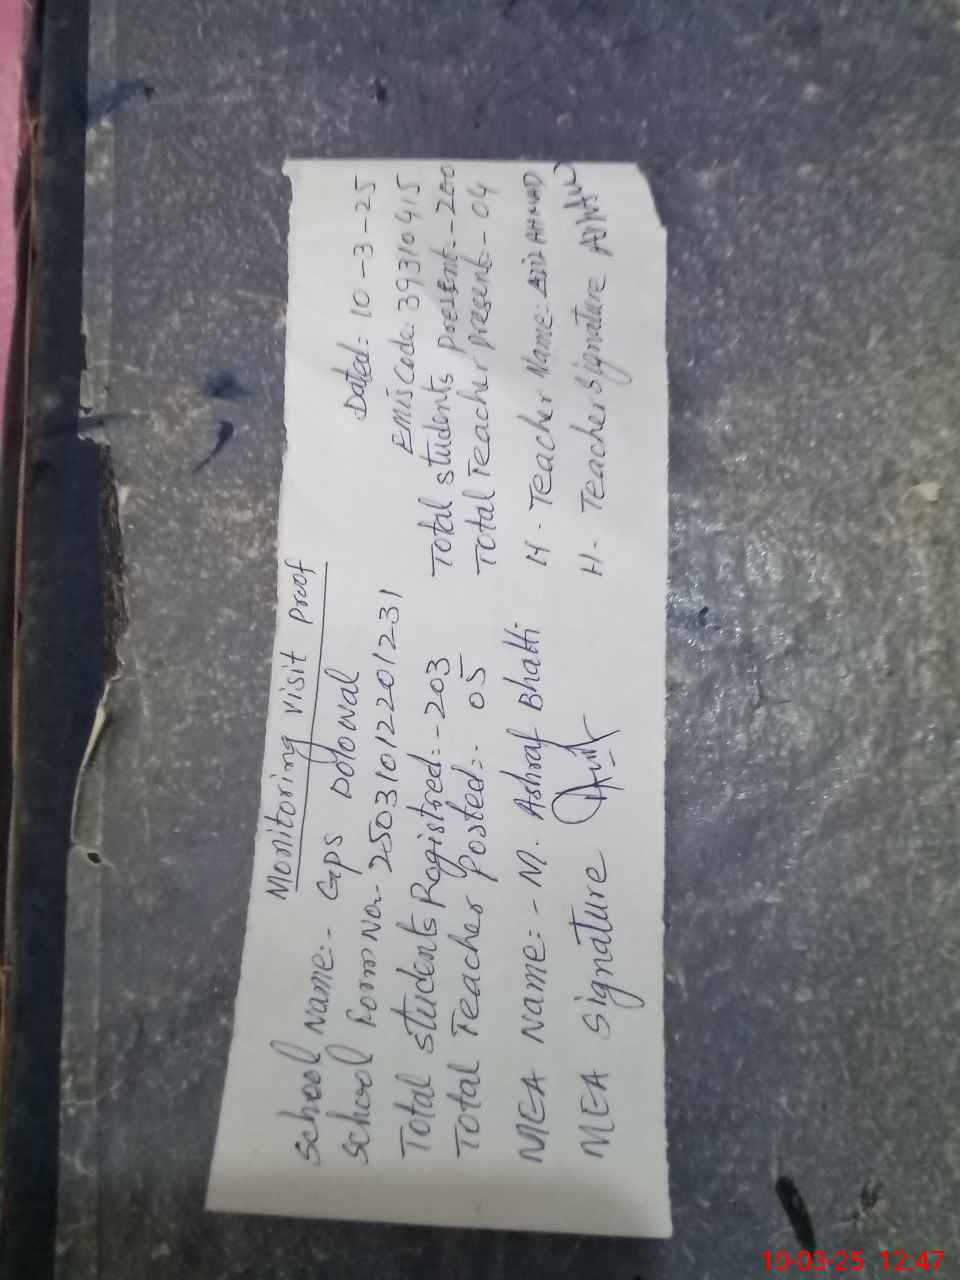 Monitoring visit Proof
School Name:- GPS Dolowal Dated:- 10-3-25
School Form No- 25031012201231 EMIS Code: 39310415
Total Students Registred:- 203 Total Students Present:- 200
Total Teacher Posted:- 05 Total Teacher present - 04
MEA Name:- M. Ashraf Bhatti H. Teacher Name - AZIZ AHMAD
MEA Signature H- Teacher Signature
10-03-25 12:47